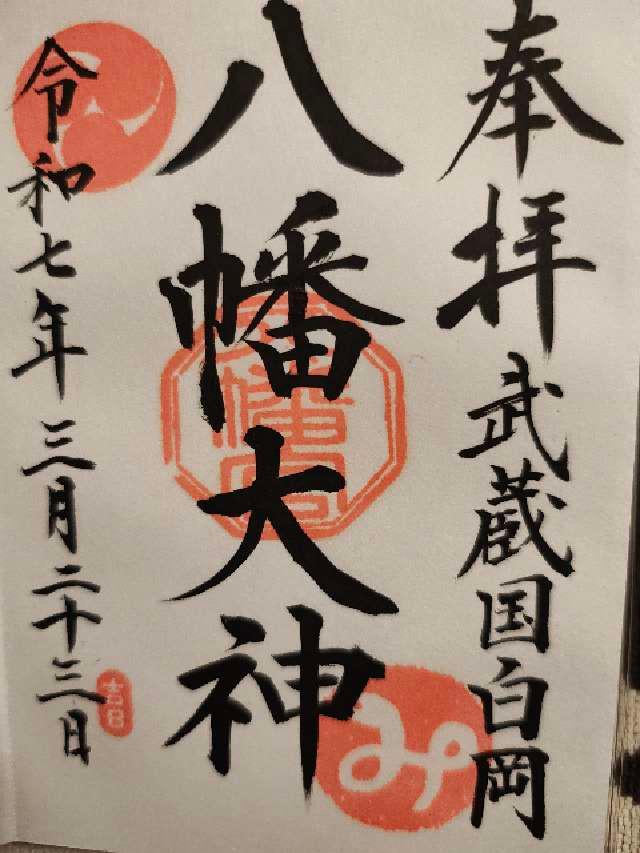 奉拝 武蔵国白岡
八幡大神
令和七年三月二十三日
吉日
み